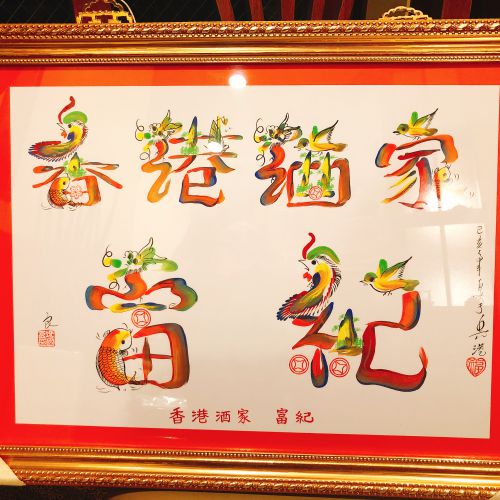 香港酒家
富紀
己亥
港
良
福
香港酒家 富紀